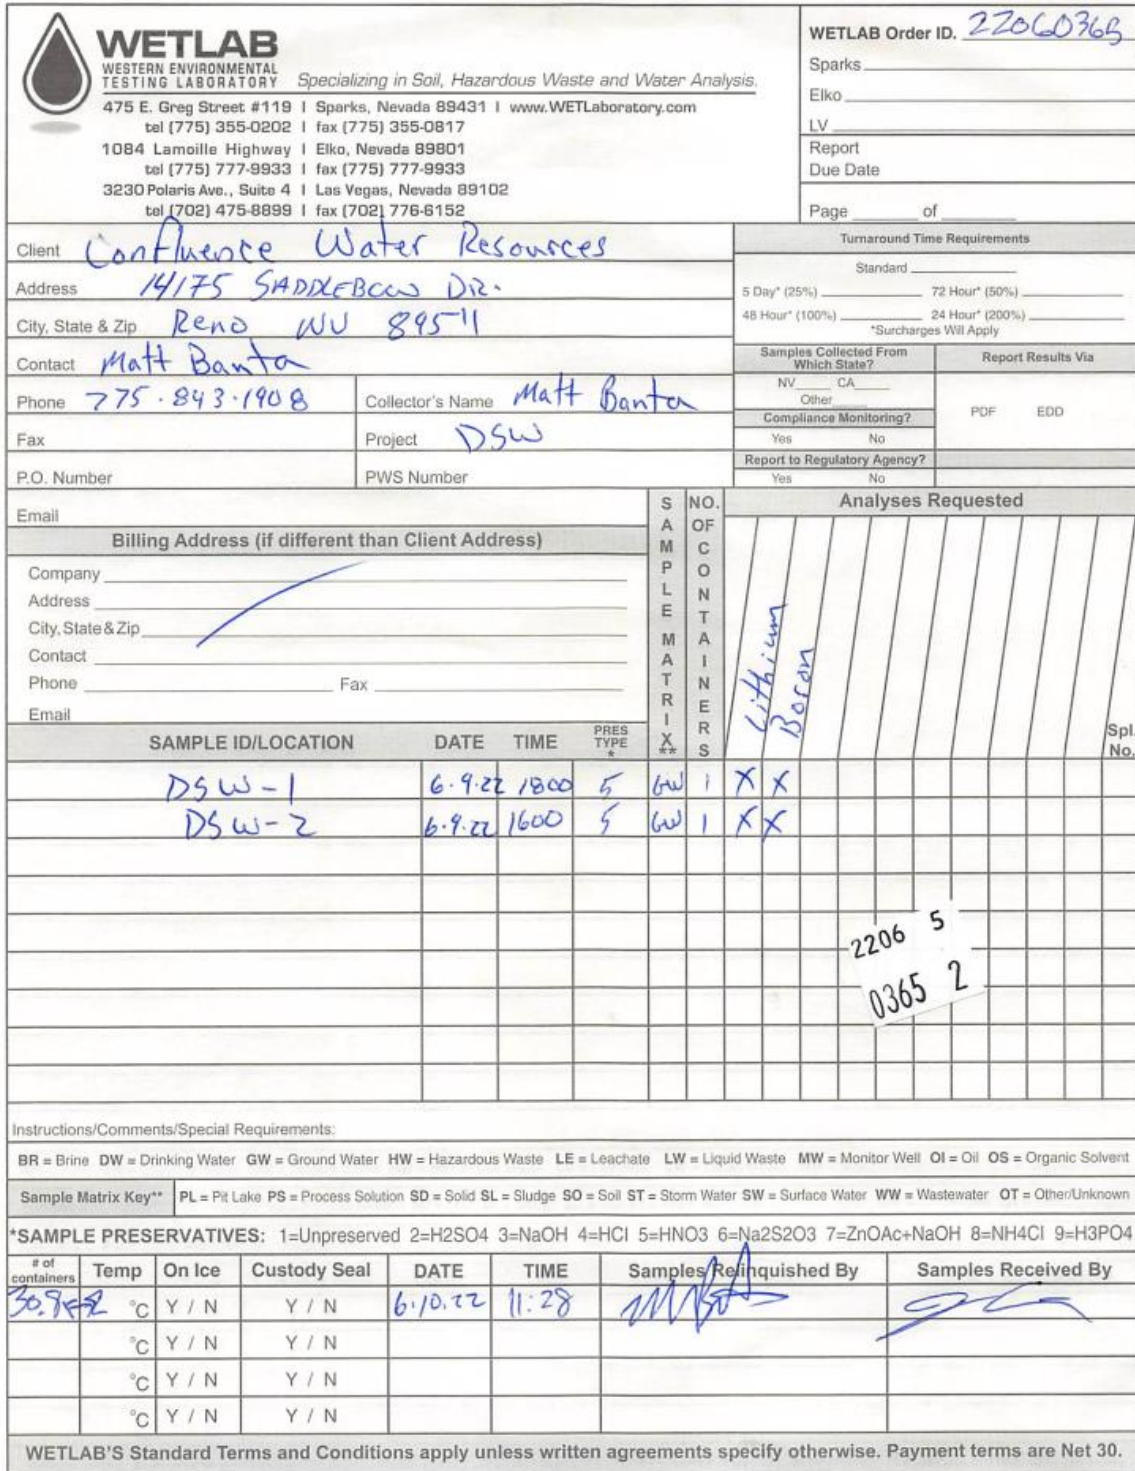 WETLAB
WESTERN ENVIRONMENTAL
TESTING LABORATORY
Specializing in Soil, Hazardous Waste and Water Analysis.
475 E. Greg Street #119 | Sparks, Nevada 89431 | www.WETLaboratory.com
tel (775) 355-0202 | fax (775) 355-0817
1084 Lamoille Highway | Elko, Nevada 89801
tel (775) 777-9933 | fax (775) 777-9933
3230 Polaris Ave., Suite 4 | Las Vegas, Nevada 89102
tel (702) 475-8899 | fax (702) 776-6152
WETLAB Order ID. 22060365
Sparks
Elko
LV
Report
Due Date
Page of
Client Confluence Water Resources
Address 14175 SADDLEBOW DR.
City, State & Zip Reno NV 89511
Contact Matt Banta
Phone 775.843.1908 Collector's Name Matt Banta
Fax Project DSW
P.O. Number PWS Number
Email
Turnaround Time Requirements
Standard
5 Day* (25%) 72 Hour* (50%)
48 Hour* (100%) 24 Hour* (200%)
*Surcharges Will Apply
Samples Collected From
Which State?
NV CA
Other
Report Results Via
PDF EDD
Compliance Monitoring?
Yes No
Report to Regulatory Agency?
Yes No
Billing Address (if different than Client Address)
Company
Address
City, State & Zip
Contact
Phone Fax
Email
SAMPLE MATRIX**
NO. OF CONTAINERS
Analyses Requested
Lithium
Boron
Spl.
No.
SAMPLE ID/LOCATION DATE TIME PRES TYPE *
DSW-1 6.9.22 1800 5 GW 1 X X
DSW-2 6.9.22 1600 5 GW 1 X X
2206 5
0365 2
Instructions/Comments/Special Requirements:
BR = Brine DW = Drinking Water GW = Ground Water HW = Hazardous Waste LE = Leachate LW = Liquid Waste MW = Monitor Well OI = Oil OS = Organic Solvent
Sample Matrix Key** PL = Pit Lake PS = Process Solution SD = Solid SL = Sludge SO = Soil ST = Storm Water SW = Surface Water WW = Wastewater OT = Other/Unknown
*SAMPLE PRESERVATIVES: 1=Unpreserved 2=H2SO4 3=NaOH 4=HCl 5=HNO3 6=Na2S2O3 7=ZnOAc+NaOH 8=NH4Cl 9=H3PO4
# of containers Temp On Ice Custody Seal DATE TIME Samples Relinquished By Samples Received By
°C Y / N Y / N 6.10.22 11:28
°C Y / N Y / N
°C Y / N Y / N
°C Y / N Y / N
WETLAB'S Standard Terms and Conditions apply unless written agreements specify otherwise. Payment terms are Net 30.